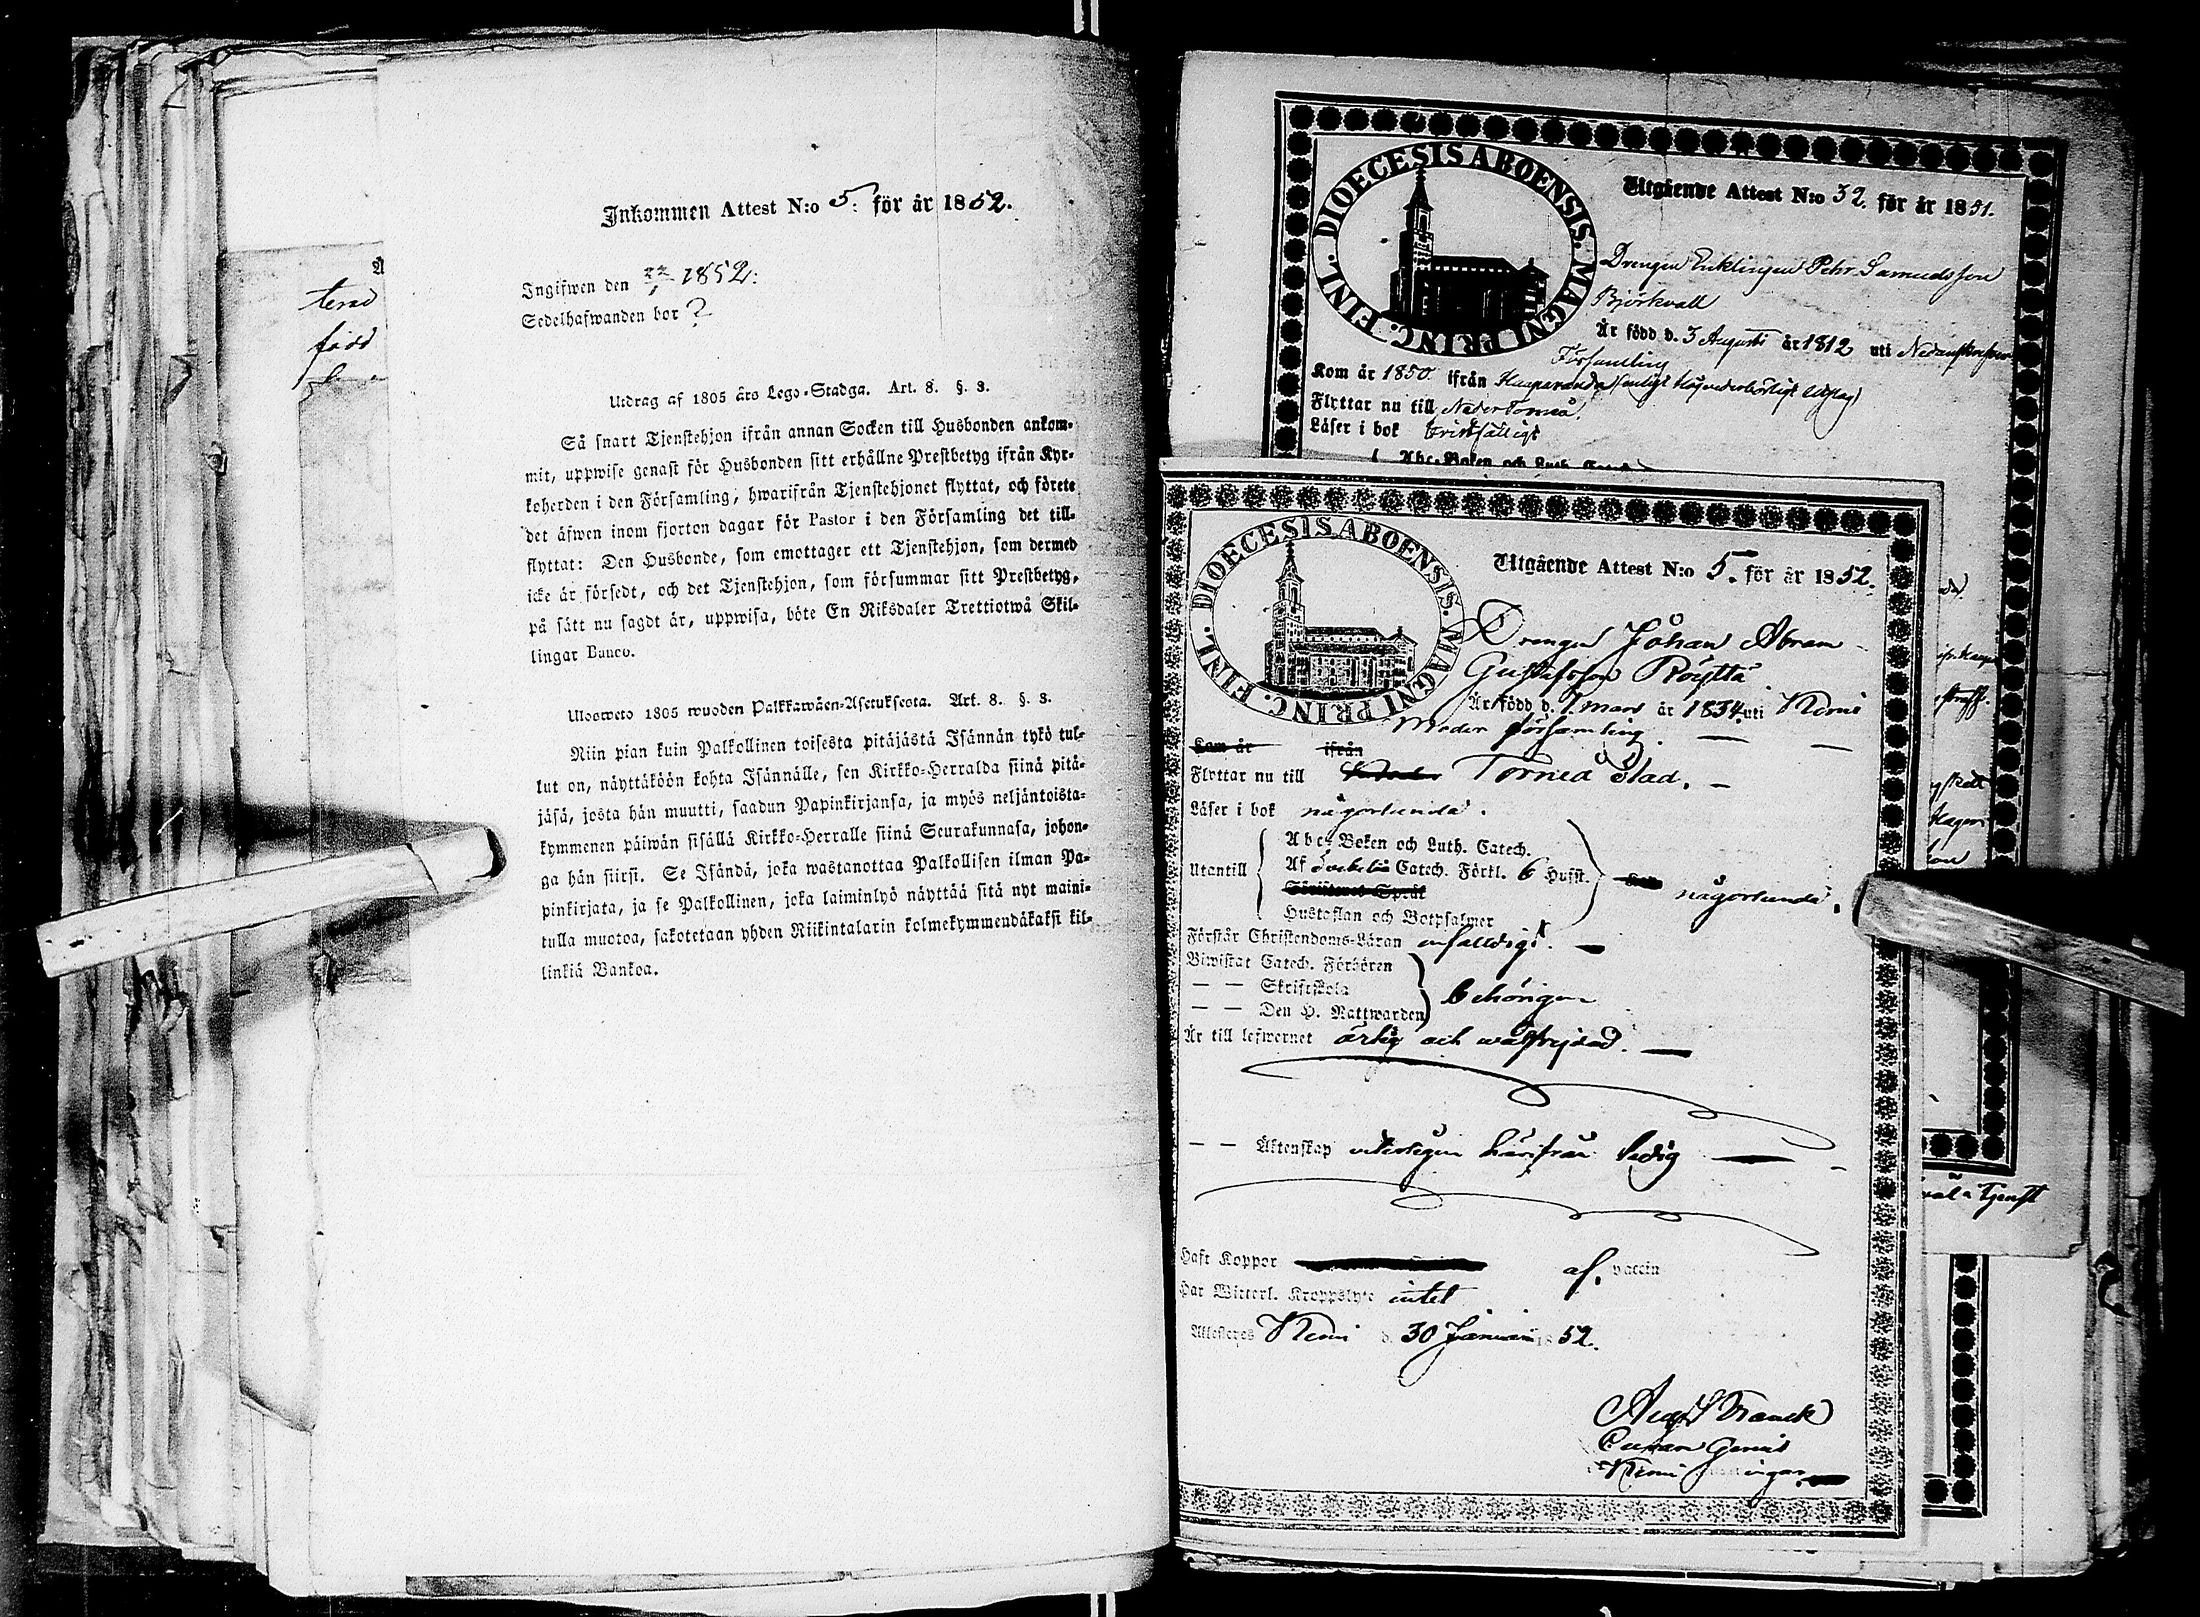 Inkommen Attest N:o 5. för år 1852.
Ingifwen den 1852.
Sedelhafwanden bor ?
Utdrag af 1805 års Lego-Stadga. Art. 8. §. 3.
Så snart Tjenstehjon ifrån annan Socken till Husbonden ankom-
mit, uppwise genast för Husbonden sitt erhållne Prestbetyg ifrån Kyr-
koherden i den Församling, hwarifrån Tjenstehjonet flyttat, och förete
det äfwen inom fjorton dagar för Pastor i den Församling det till-
flyttat: Den Husbonde, som emottager ett Tjenstehjon, som dermed
icke är försedt, och det Tjenstehjon, som försummar sitt Prestbetyg,
på sätt nu sagdt är, uppwisa, böte En Riksdaler Trettiotwå Skil-
lingar Banco.
Ulosweto 1805 wuoden Palkkawäen-Asetuksesta. Art. 8. §. 3.
Niin pian kuin Palkollinen toisesta pitäjästä Isännän tykö tul-
lut on, näyttäköön kohta Isännälle, sen Kirkko-Herralda siinä pitä-
jäsä, josta hän muutti, saadun Papinkirjansa, ja myös neljäntoista-
kymmenen päiwän sisällä Kirkko-Herralle siinä Seurakunnasa, johon-
ga hän siirsi. Se Isändä, joka wastanottaa Palkollisen ilman Pa-
pinkirjata, ja se Palkollinen, joka laiminlyö näyttää sitä nyt maini-
tulla muotoa, sakotetaan yhden Riikintalarin kolmekymmendäkaksi kil-
linkiä Bankoa.
terad
född
DIOECESIS ABOENSIS. MAGNI PRINC. FINL.
Utgående Attest N:o 32. för år 1851.
Drengen Pehr Samuelsson
Björkvall
Är född d. 3 Augusti år 1812 uti
Församling
Kom år 1850 ifrån Haparanda
Flyttar nu till Neder Torneå.
Läser i bok
Abc-Boken och Luth. Catech.
DIOECESIS ABOENSIS. MAGNI PRINC. FINL.
Utgående Attest N:o 5. för år 1852.
Drengen Johan Abram
Gustafsson Röyttä
Är född d. 7 mars år 1834 uti Kemi
Moder församling.
Kom år ifrån
Flyttar nu till Torneå Stad.
Läser i bok någorlunda.
Utantill
Abc-Boken och Luth. Catech.
Af Svebelii Catech. Förkl. 6 Hufst.
någorlunda.
Hustaflan och Botpsalmer
Förstår Christendoms-Läran enfaldigt.
Biwistat Catech. Förhören
— — Skriftskola
— — Den H. Nattwarden
behörigen
Är till lefwernet ärlig och wälfrejdad.
— — Äktenskap härifrån ledig
Haft Koppor af vaccin
Har Witterl. Kroppslyte intet
Attesteras Kemi d. 30 Januari 1852.
Kemi
tjenst